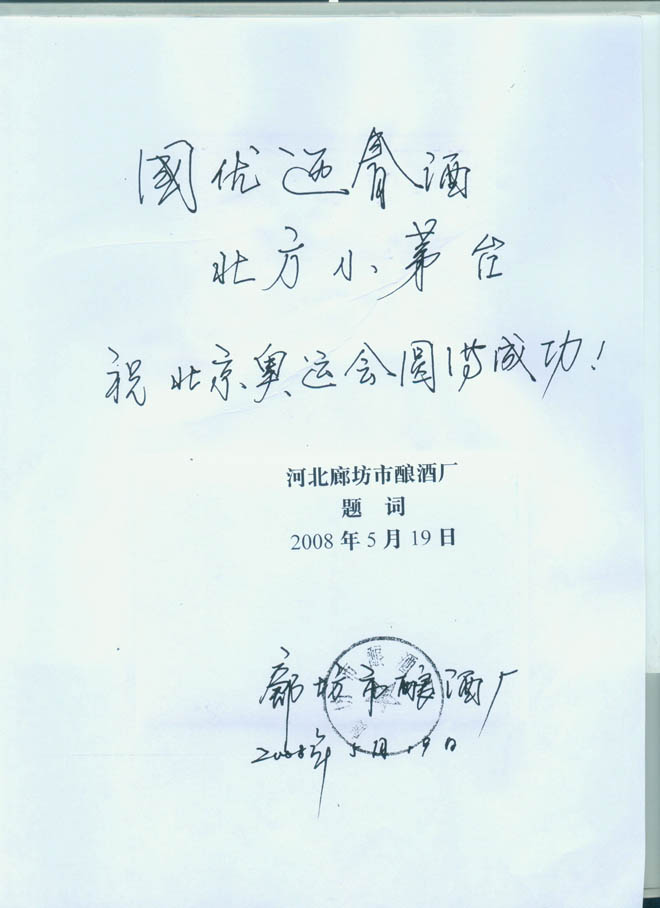 國优迎春酒
北方小茅台
祝北京奥运会圆满成功！
河北廊坊市酿酒厂
题 词
2008 年 5 月 19 日
廊坊市酿酒厂
2008年 5月 19日